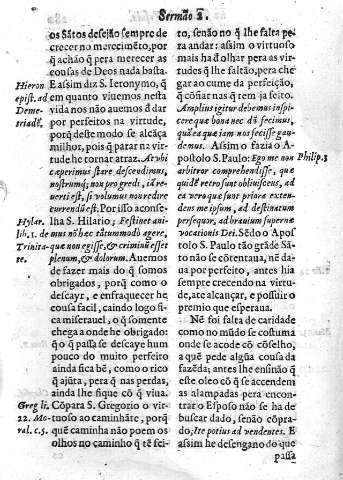 Sermão 2.
os Sãtos desejão sempre de
crecer no merecimẽto, por
q̃ achão q̃ pera merecer as
cousas de Deos nada basta.
E assim diz S. Ieronymo, q̃
em quanto viuemos nesta
vida nos não auemos d̃ dar
por perfeitos na virtude,
porq̃ deste modo se alcãça
milhor, pois q̃ parar na vir-
tude he tornar atraz. At vbi
cœperimus stare descendimus,
nostrumq; non progredi, iã re-
uerti est, si volumus non redire
currendũ est. Por isso aconse-
lha S. Hilario; Festinet ani-
mus nõ hæc tãtummodò agere,
quæ non egisse, & criminũ esset
plenum, & dolorum. Auemos
de fazer mais do q̃ somos
obrigados, porq̃ como o
descayr, e enfraquecer he
cousa facil, caindo logo fi-
ca miserauel, o q̃ somente
chega a onde he obrigado:
q̃ o q̃ passa se descaye hum
pouco do muito perfeito
ainda fica bẽ, como o rico
q̃ ajũta, pera q̃ nas perdas,
ainda lhe fique cõ q̃ viua.
Cõpara S. Gregorio o vir-
tuoso ao caminhãte, porq̃
que caminha não poem os
olhos no caminho q̃ tẽ fei-
Hieron.
epist. ad
Deme-
triadẽ.
Hylar.
lib. 1. de
Trinita-
te.
Greg li.
22. Mo-
ral. c. 5.
to, senão no q̃ lhe falta pe-
ra andar: assim o virtuoso
mais ha d̃ olhar pera as vir-
tudes q̃ lhe faltão, pera che
gar ao cume da perfeição,
q̃ cõfiar nas q̃ tem ja feito.
Amplius igitur debemus inspi-
cere quæ bona nec dũ fecimus,
quã ea quæ iam nos fecisse gau-
demus. Assim o fazia o A-
postolo S. Paulo: Ego me non
arbitror comprehendisse, quæ
quidẽ retrò sunt obliuiscens, ad
ea verò quæ sunt priora exten-
dens me ipsum, ad destinatum
persequor, ad brauium supernæ
vocationis Dei. Sẽdo o Apos
tolo S. Paulo tão grãde Sã-
to não se cõtentaua, nẽ da-
ua por perfeito, antes hia
sempre crecendo na virtu-
de, atè alcançar, e possuir o
premio que esperaua.
Nẽ foi falta de caridade
como no mũdo se costuma
onde se acode cõ cõselho,
a quẽ pede algũa cousa da
fazẽda; antes lhe ensinão q̃
este oleo cõ q̃ se accendem
as alampadas pera encon-
trar o Esposo não se ha de
buscar dado, senão cõpra-
do; ite potius ad vendentes. E
assim he desengano do que
Philip. 3
passa